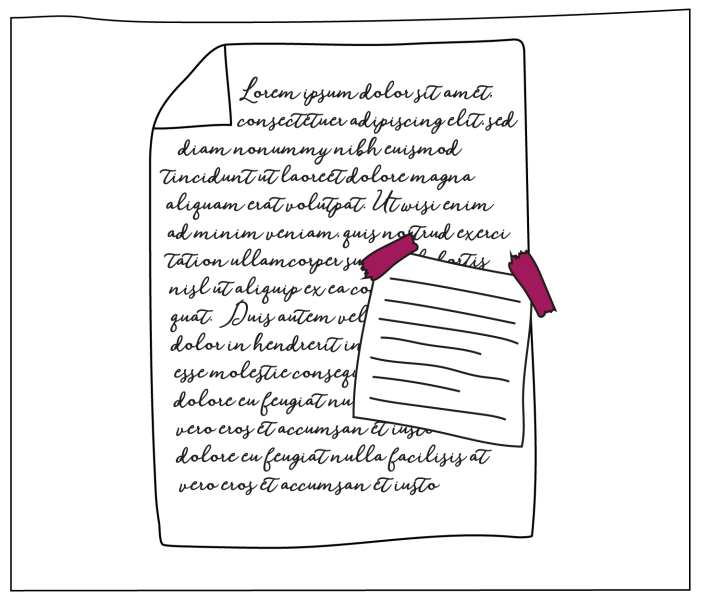 Lorem ipsum dolor sit amet.
consectetuer adipiscing elit. sed
diam nonummy nibh euismod
tincidunt ut laoreet dolore magna
aliquam erat volutpat. Ut wisi enim
ad minim veniam. quis nostrud exerci
tation ullamcorper
nisl ut aliquip ex ea
quat. Duis autem vel
dolor in hendrerit in
esse molestie
dolore eu feugiat
vero eros et accumsan et iusto
dolore eu feugiat nulla facilisis at
vero eros et accumsan et iusto